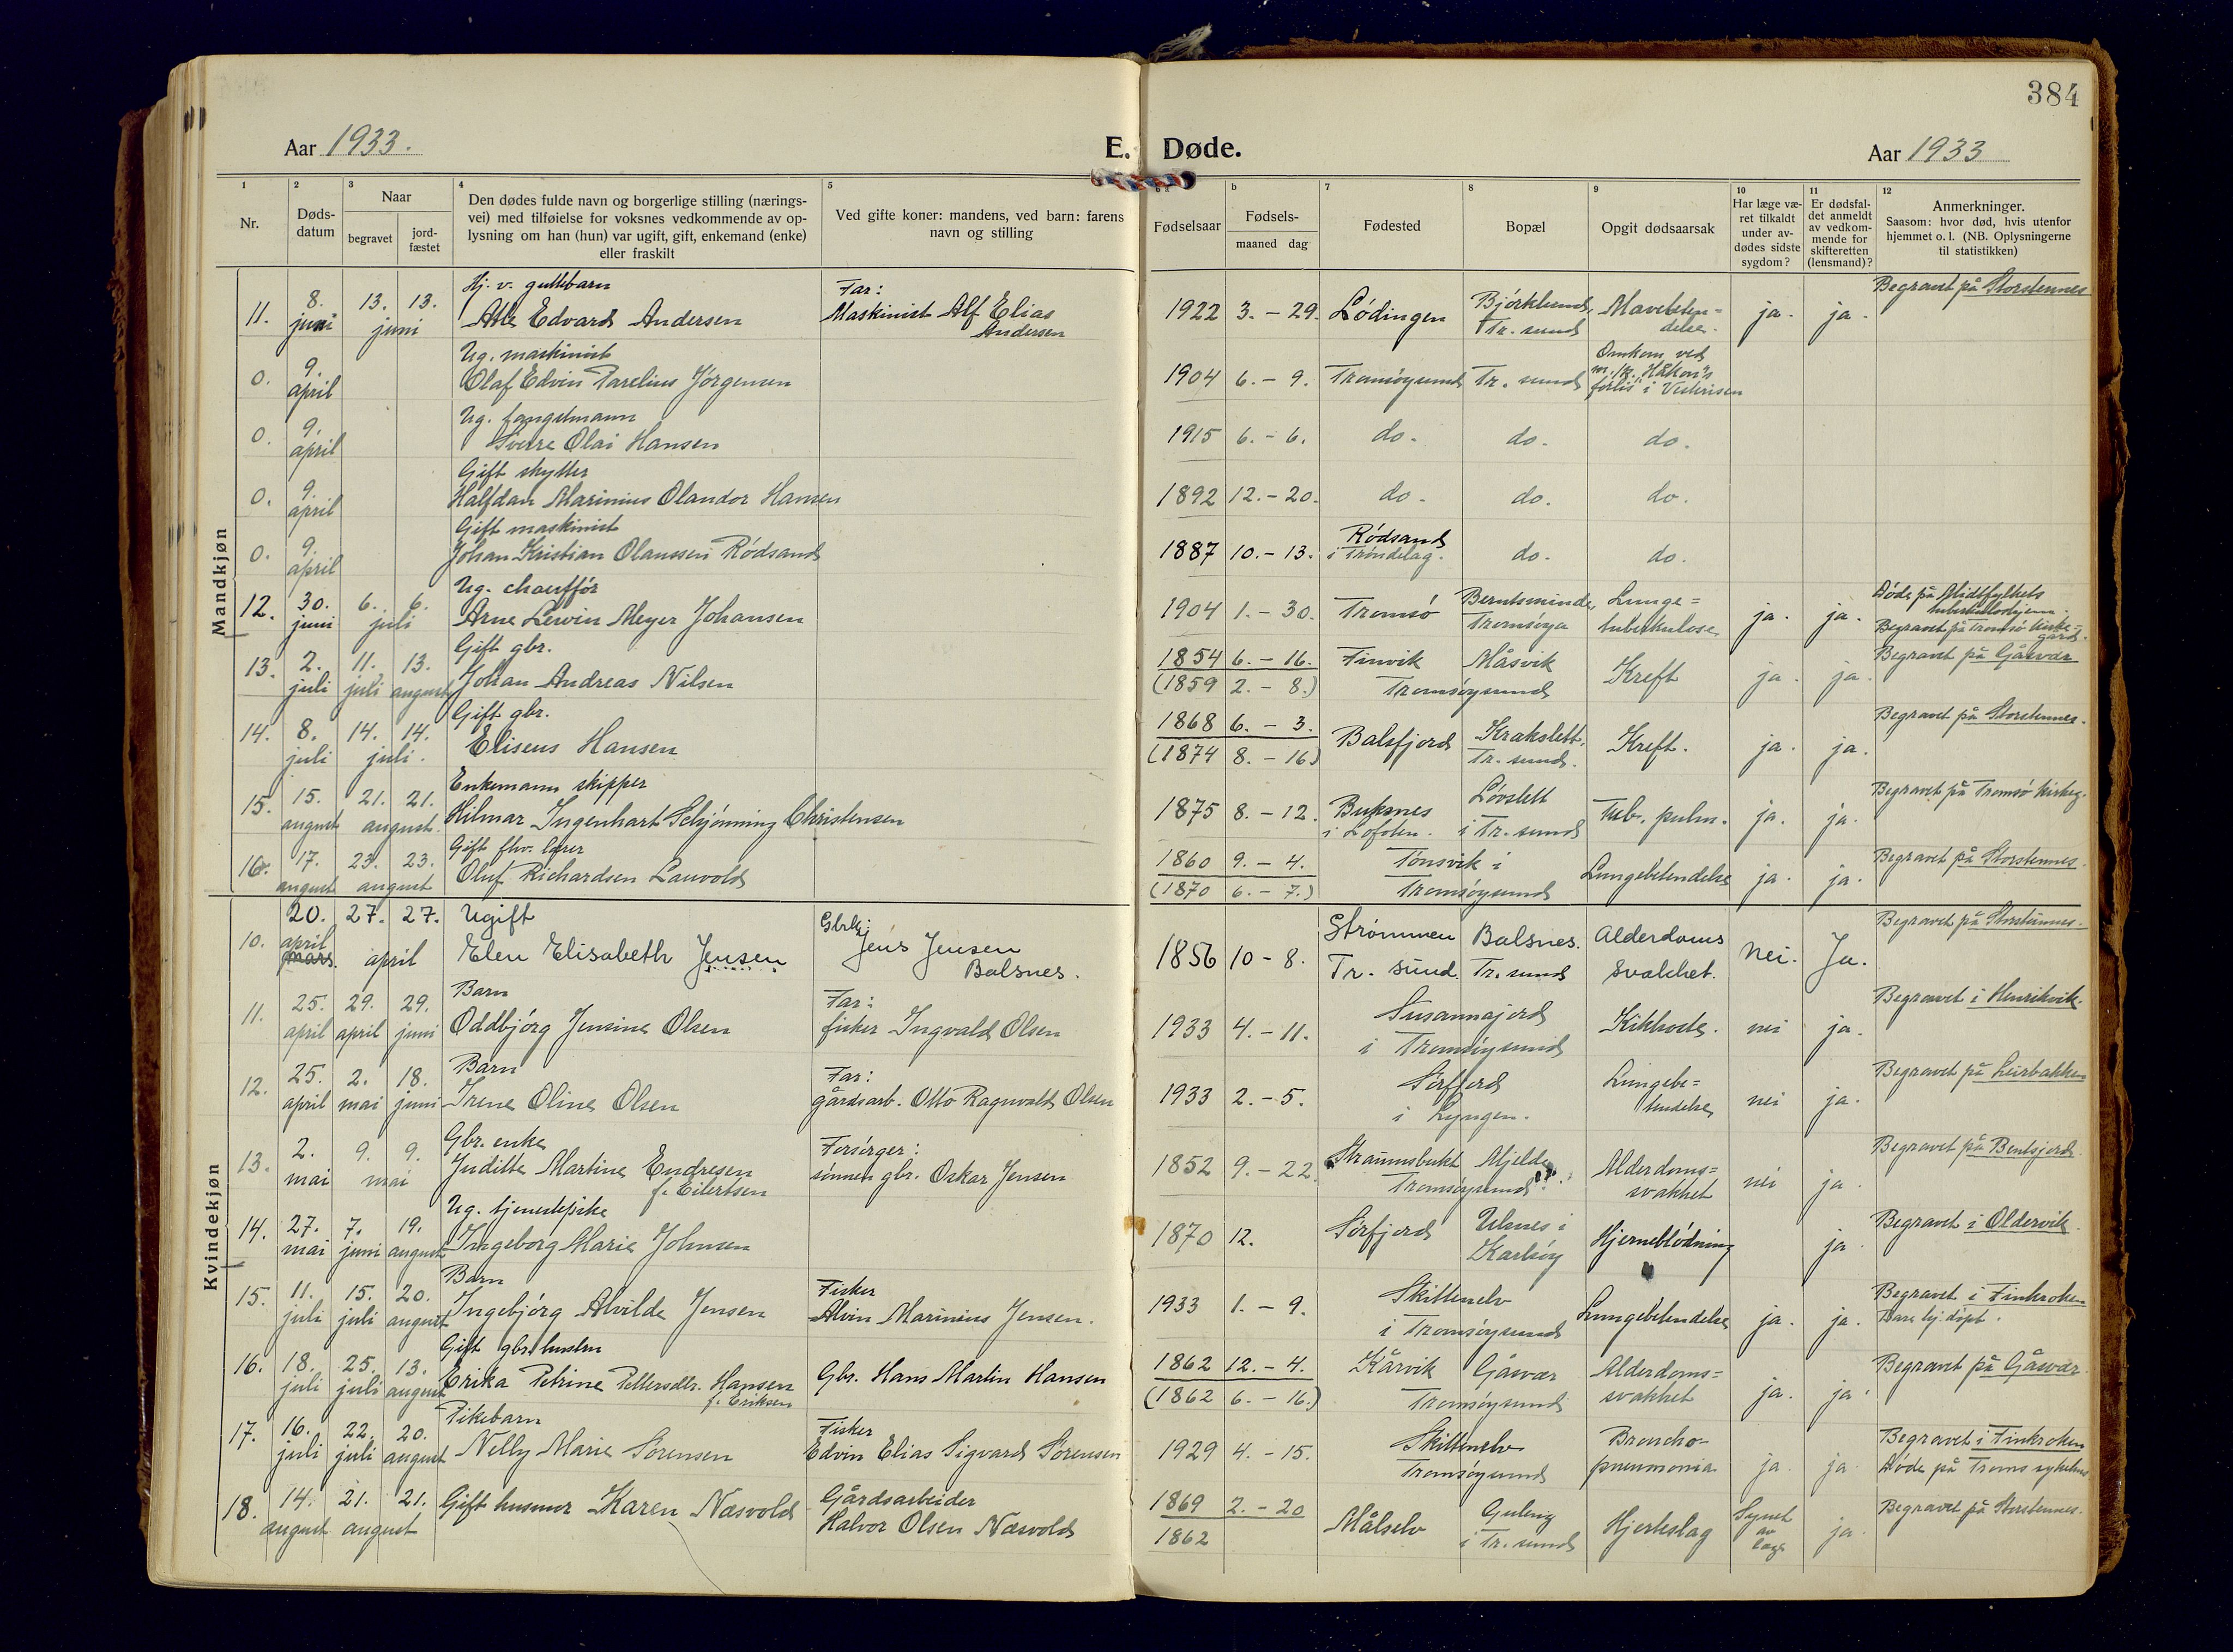 384
Aar 1933.
E. Døde.
Aar 1933
1 2 3 4 5 6 a b 7 8 9 10 11 12
Nr.
Døds-
datum
Naar
begravet
jord-
fæstet
Den dødes fulde navn og borgerlige stilling (nærings-
vei) med tilføielse for voksnes vedkommende av op-
lysning om han (hun) var ugift, gift, enkemand (enke)
eller fraskilt
Ved gifte koner: mandens, ved barn: farens
navn og stilling
Fødselsaar
Fødsels-
maaned dag
Fødested
Bopæl
Opgit dødsaarsak
Har læge væ-
ret tilkaldt
under av-
dødes sidste
sygdom?
Er dødsfal-
det anmeldt
av vedkom-
mende for
skifteretten
(lensmand)?
Anmerkninger.
Saasom: hvor død, hvis utenfor
hjemmet o. l. (NB. Oplysningerne
til statistikken)
Mandkjøn
11. 8. juni 13. 13. juni Hj. v. guttebarn
Edvard Andersen Far: Maskinist Alf Elias Andersen 1922 3. - 29. Lødingen Tr. sund ja. ja. Begravet på Storstennes
0. 9. april Ug. maskinist
Olaf Edvin Parelius Jørgensen 1904 6. - 9. Tromsøysund Tr. sund Omkom ved m./k. "Håkon"s forlis i Vestisen
0. 9. april Ug. fangstmann
Sverre Olai Hansen 1915 6. - 6. do. do. do.
0. 9. april Gift skytter
Halfdan Marinius Olandor Hansen 1892 12. - 20. do. do. do.
0. 9. april Gift maskinist
Johan Kristian Olaussen Rødsand 1887 10. - 13. Rødsand i Trøndelag. do. do.
12. 30. juni 6. 6. juli Ug. chauffør
Arne Lewin Meyer Johansen 1904 1. - 30. Tromsø Berntsminde, Tromsøya Lunge=tuberkulose ja. ja. Døde på Midtfylkets tuberkuloshjem. Begravet på Tromsø kirke=gård.
13. 2. juli 11. juli 13. august Gift gbr.
Johan Andreas Nilsen 1854 6. - 16. (1859 2. - 8.) Finvik Måsvik Tromsøysund Kreft ja. ja. Begravet på Gåsvær
14. 8. juli 14. 14. juli. Gift gbr.
Eliseus Hansen 1868 6. - 3. (1874 8. - 16) Balsfjord Krakslett. Tr. sund. Kreft. ja. ja. Begravet på Storstennes.
15. 15. august 21. 21. august. Enkemann skipper
Hilmar Ingenhart Schjønning Christensen 1875 8. - 12. Buksnes i Lofoten. Løvslett i Tr. sund Tub. pulm. ja. ja. Begravet på Tromsø kirkeg.
16. 17. august 23. 23. august Gift fhv. lærer
Oluf Richardsen Lauvold 1860 9. - 4. (1870 6. - 7.) Tønsvik i Tromsøysund Lungebetendelse ja. ja. Begravet på Storstennes.
Kvindekjøn
10. 20. april mars. 27. 27. april Ugift
Elen Elisabeth Jensen Gbrkj Jens Jensen Balsnes. 1856 10 - 8. Strømmen Tr. sund. Balsnes. Tr. sund Alderdoms svakhet. Nei. Ja. Begravet på Storstennes.
11. 25. april 29. april 29. juni Barn
Oddbjørg Jensine Olsen Far: fisker Ingvald Olsen 1933 4. - 11. Susannajord i Tromsøysund Kikhoste. nei ja. Begravet i Henrikvik.
12. 25. april 2. mai 18. juni Barn
Irene Oline Olsen Far: gårdsarb. Otto Ragnvald Olsen 1933 2. - 5. Sørfjord i Lyngen. Lungebe=tendelse nei ja. Begravet på Leirbakken
13. 2. mai 9. 9. mai Gbr. enke
Juditte Martine Endresen f. Eilertsen Forsørger: sønnen gbr. Oskar Jensen 1852 9. - 22. Straumsbukt Mjelde Tromsøysund Alderdoms=svakhet nei ja. Begravet på Bentsjord
14. 27. mai 7. juni 19. august Ug. tjenestepike
Ingeborg Marie Johnsen 1870 12. Sørfjord Ulsnes i Karlsøy Hjerneblødning ja Begravet i Oldervik.
15. 11. juli 15. juli 20. august Barn
Ingebjørg Alvilde Jensen Fisker Alvin Marinius Jensen. 1933 1. - 9. Skittenelv i Tromsøysund Lungebetendelse ja. ja. Begravet i Finkroken Bare hj. døpt.
16. 18. juli 25. juli 13. august Gift gbr. hustru
Erika Petrine Pettersdtr. Hansen f. Eriksen Gbr. Hans Martin Hansen 1862 12. - 4. (1862 6. - 16.) Kårvik Gåsvær Tromsøysund Alderdoms=svakhet ja. ja. Begravet på Gåsvær.
17. 16. juli 22. juli 20. august Pikebarn
Nelly Marie Sørensen Fisker Edvin Elias Sigvard Sørensen 1929 4. - 15. Skittenelv Tromsøysund Broncho-pneumonia ja ja Begravet i Finkroken Døde på Troms sykehus
18. 14. august 21. 21. august Gift husmor Karen Næsvold Gårdsarbeider Halvor Olsen Næsvold 1869 2. - 20 1862 Målselv i Tr. sund Hjerteslag Synet av læge ja. Begravet på Storstennes.